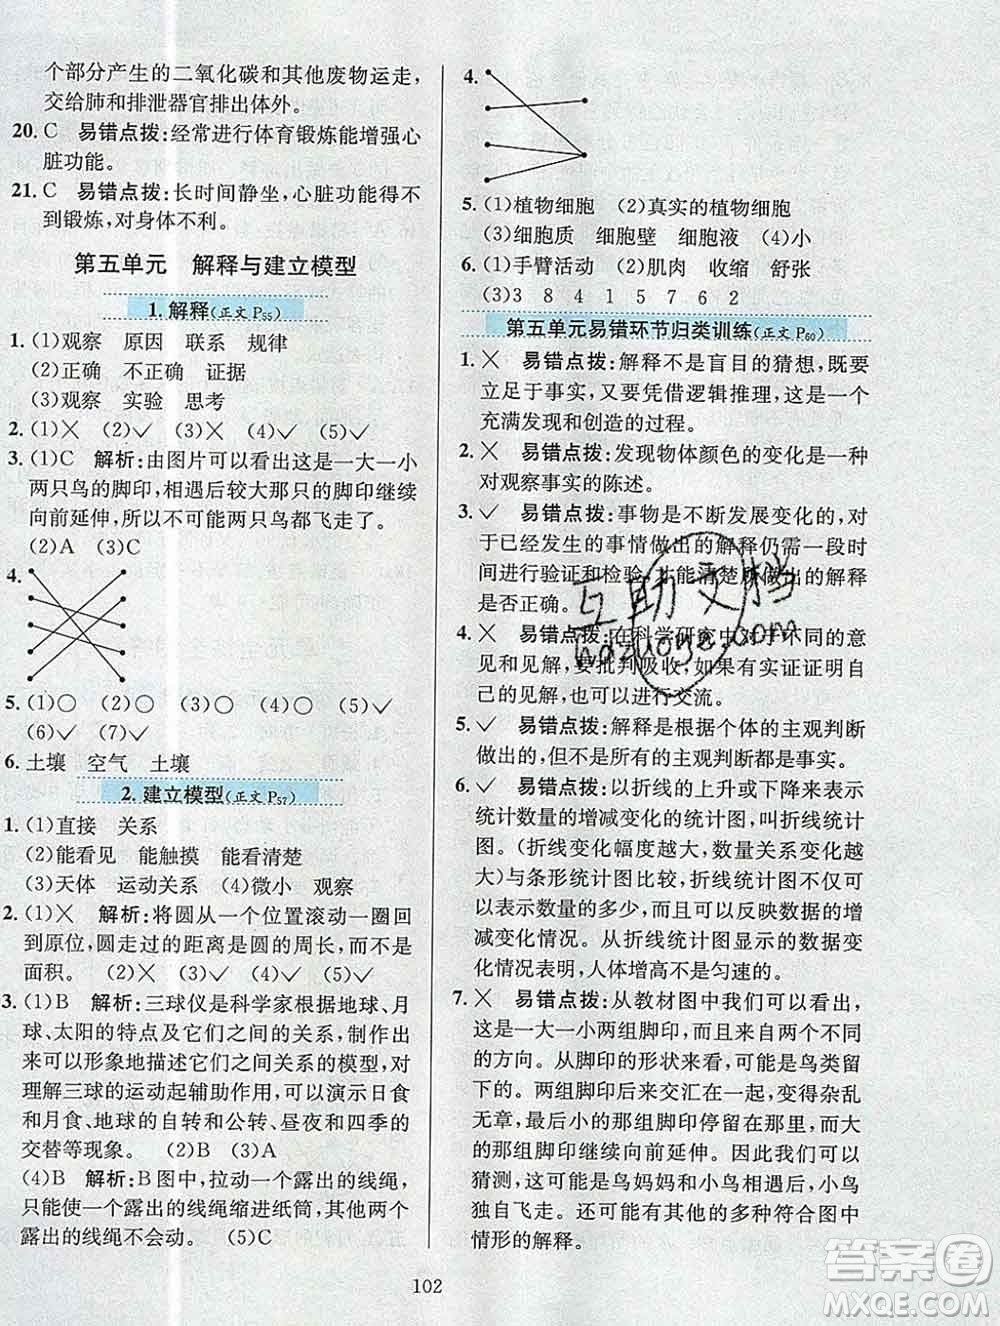 个部分产生的二氧化碳和其他废物运走,
交给肺和排泄器官排出体外。
20. C 易错点拨:经常进行体育锻炼能增强心
脏功能。
21. C 易错点拨:长时间静坐,心脏功能得不
到锻炼,对身体不利。
第五单元 解释与建立模型
1. 解释(正文 P55)
1. (1)观察 原因 联系 规律
(2)正确 不正确 证据
(3)观察 实验 思考
2. (1)× (2)✓ (3)× (4)✓ (5)✓
3. (1)C 解析:由图片可以看出这是一大一小
两只鸟的脚印,相遇后较大那只的脚印继续
向前延伸,所以不可能两只鸟都飞走了。
(2)A (3)C
4.
5. (1)○ (2)○ (3)○ (4)○ (5)✓
(6)✓ (7)✓
6. 土壤 空气 土壤
2. 建立模型(正文 P57)
1. (1)直接 关系
(2)能看见 能触摸 能看清楚
(3)天体 运动关系 (4)微小 观察
2. (1)× 解析:将圆从一个位置滚动一圈回
到原位,圆走过的距离是圆的周长,而不是
面积。 (2)× (3)✓ (4)✓ (5)✓
3. (1)B 解析:三球仪是科学家根据地球、月
球、太阳的特点及它们之间的关系,制作出
来可以形象地描述它们之间关系的模型,对
理解三球的运动起辅助作用,可以演示日食
和月食、地球的自转和公转、昼夜和四季的
交替等现象。 (2)B (3)A
(4)B 解析:B图中,拉动一个露出的线绳,
只能使一个露出的线绳缩进纸筒,其他两个
露出的线绳不会动。 (5)C
4.
5. (1)植物细胞 (2)真实的植物细胞
(3)细胞质 细胞壁 细胞膜 (4)小
6. (1)手臂活动 (2)肌肉 收缩 舒张
(3)3 8 4 1 5 7 6 2
第五单元易错环节归类训练(正文 P60)
1. × 易错点拨:解释不是盲目的猜想,既要
立足于事实,又要凭借逻辑推理,这是一个
充满发现和创造的过程。
2. × 易错点拨:发现物体颜色的变化是一种
对观察事实的陈述。
3. ✓ 易错点拨:事物是不断发展变化的,对
于已经发生的事情做出的解释仍需一段时
间进行验证和检验,才能清楚所做出的解释
是否正确。
4. × 易错点拨:在科学研究中对于不同的意
见和见解,要批判吸收,如果有实证证明自
己的见解,也可以进行交流。
5. ✓ 易错点拨:解释是根据个体的主观判断
做出的,但不是所有的主观判断都是事实。
6. ✓ 易错点拨:以折线的上升或下降来表示
统计数量的增减变化的统计图,叫折线统计
图。(折线变化幅度越大,数量关系变化越
大)与条形统计图比较,折线统计图不仅可
以表示数量的多少,而且可以反映数据的增
减变化情况。从折线统计图显示的数据变
化情况表明,人体增高不是匀速的。
7. × 易错点拨:从教材图中我们可以看出,
这是一大一小两组脚印,来自两个不同
的方向。从脚印的形状来看,可能是鸟类留
下的。两组脚印后来交汇在一起,变得杂乱
无章,最后小的那组脚印停留在那里,大的
那组脚印继续向前延伸。因此,我们可以
猜测,这可能是鸟妈妈和小鸟相遇后,小鸟
独自飞走。还可能有其他的多种符合图中
情形的解释。
互助文档
hazuoye.com
102
答案圈
MXQE.COM